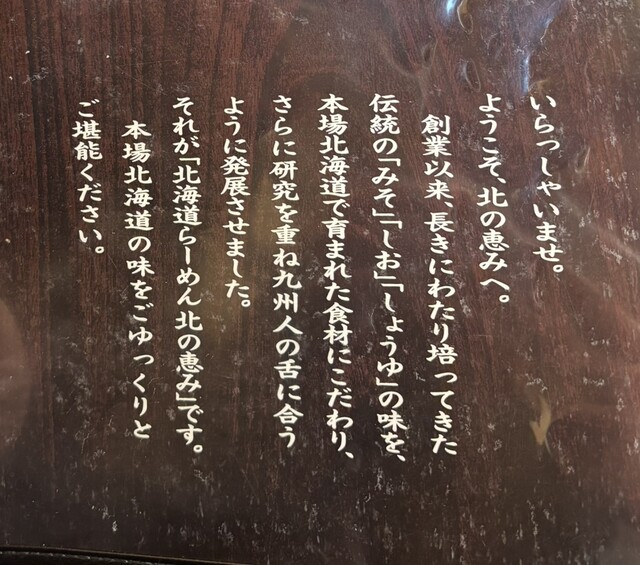 いらっしゃいませ。
ようこそ、北の恵みへ。
創業以来、長きにわたり培ってきた
伝統の「みそ」「しお」「しょうゆ」の味を、
本場北海道で育まれた食材にこだわり、
さらに研究を重ね九州人の舌に合う
ように発展させました。
それが「北海道らーめん北の恵み」です。
本場北海道の味をごゆっくりと
ご堪能ください。